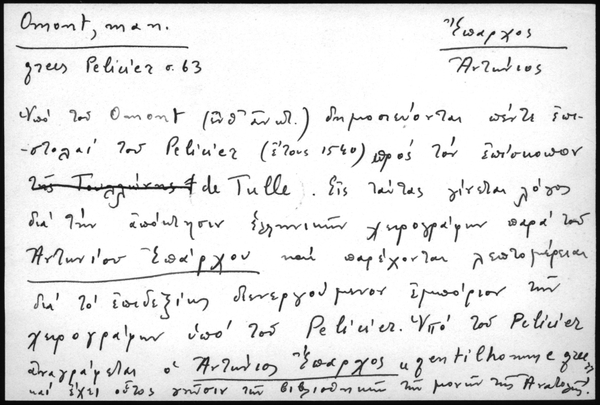 Omont, man.
Ἔπαρχος
grecs Pelicier σ. 63
Ἀντώνιος
Ὑπὸ τοῦ Omont (ἔνθ' ἀνωτ.) δημοσιεύονται πέντε ἐπι-
-στολαὶ τοῦ Pelicier (ἔτους 1540) πρὸς τὸν ἐπίσκοπον
τῆς de Tulle. Εἰς ταύτας γίνεται λόγος
διὰ τὴν ἀπόκτησιν ἑλληνικῶν χειρογράφων παρὰ τοῦ
Ἀντωνίου Ἐπάρχου καὶ παρέχονται λεπτομέρειαι
διὰ τὸ ἐπιδεξίως διενεργούμενον ἐμπόριον τῶν
χειρογράφων ὑπὸ τοῦ Pelicier. Ὑπὸ τοῦ Pelicier
ἀναγράφεται ὁ Ἀντώνιος Ἔπαρχος «gentilhomme grec»
καὶ ἔχει οὗτος τῶν βιβλιοθηκῶν τῶν μονῶν τῆς Ἀνατολῆς.